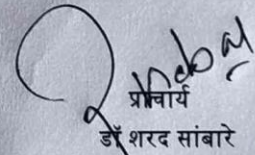 प्राचार्य
डॉ शरद सांबारे